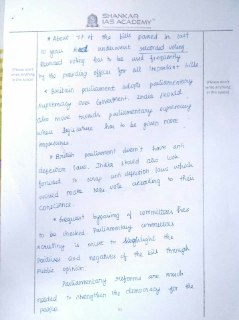 SHANKAR
IAS ACADEMY
* About 77 % of the bills passed in last
10 years had undergone recorded voting
Recorded voting has to be used frequently
by the presiding officer for all important bills
* British parliament adopts parliamentary
supremacy over Government. India should
also move towards parliamentary supremacy
where legislature has to be given more
importance
* British parliament doesn't have anti
defection law. India should also look
forward to scrap anti defection laws which
would make MPs vote according to their
conscience.
* Frequent bypassing of committees has
to be checked. Parliamentary committees
scrutiny is must to highlight the
positives and negatives of the bill through
public opinion.
Parliamentary reforms are much
needed to strengthen the democracy for the
people